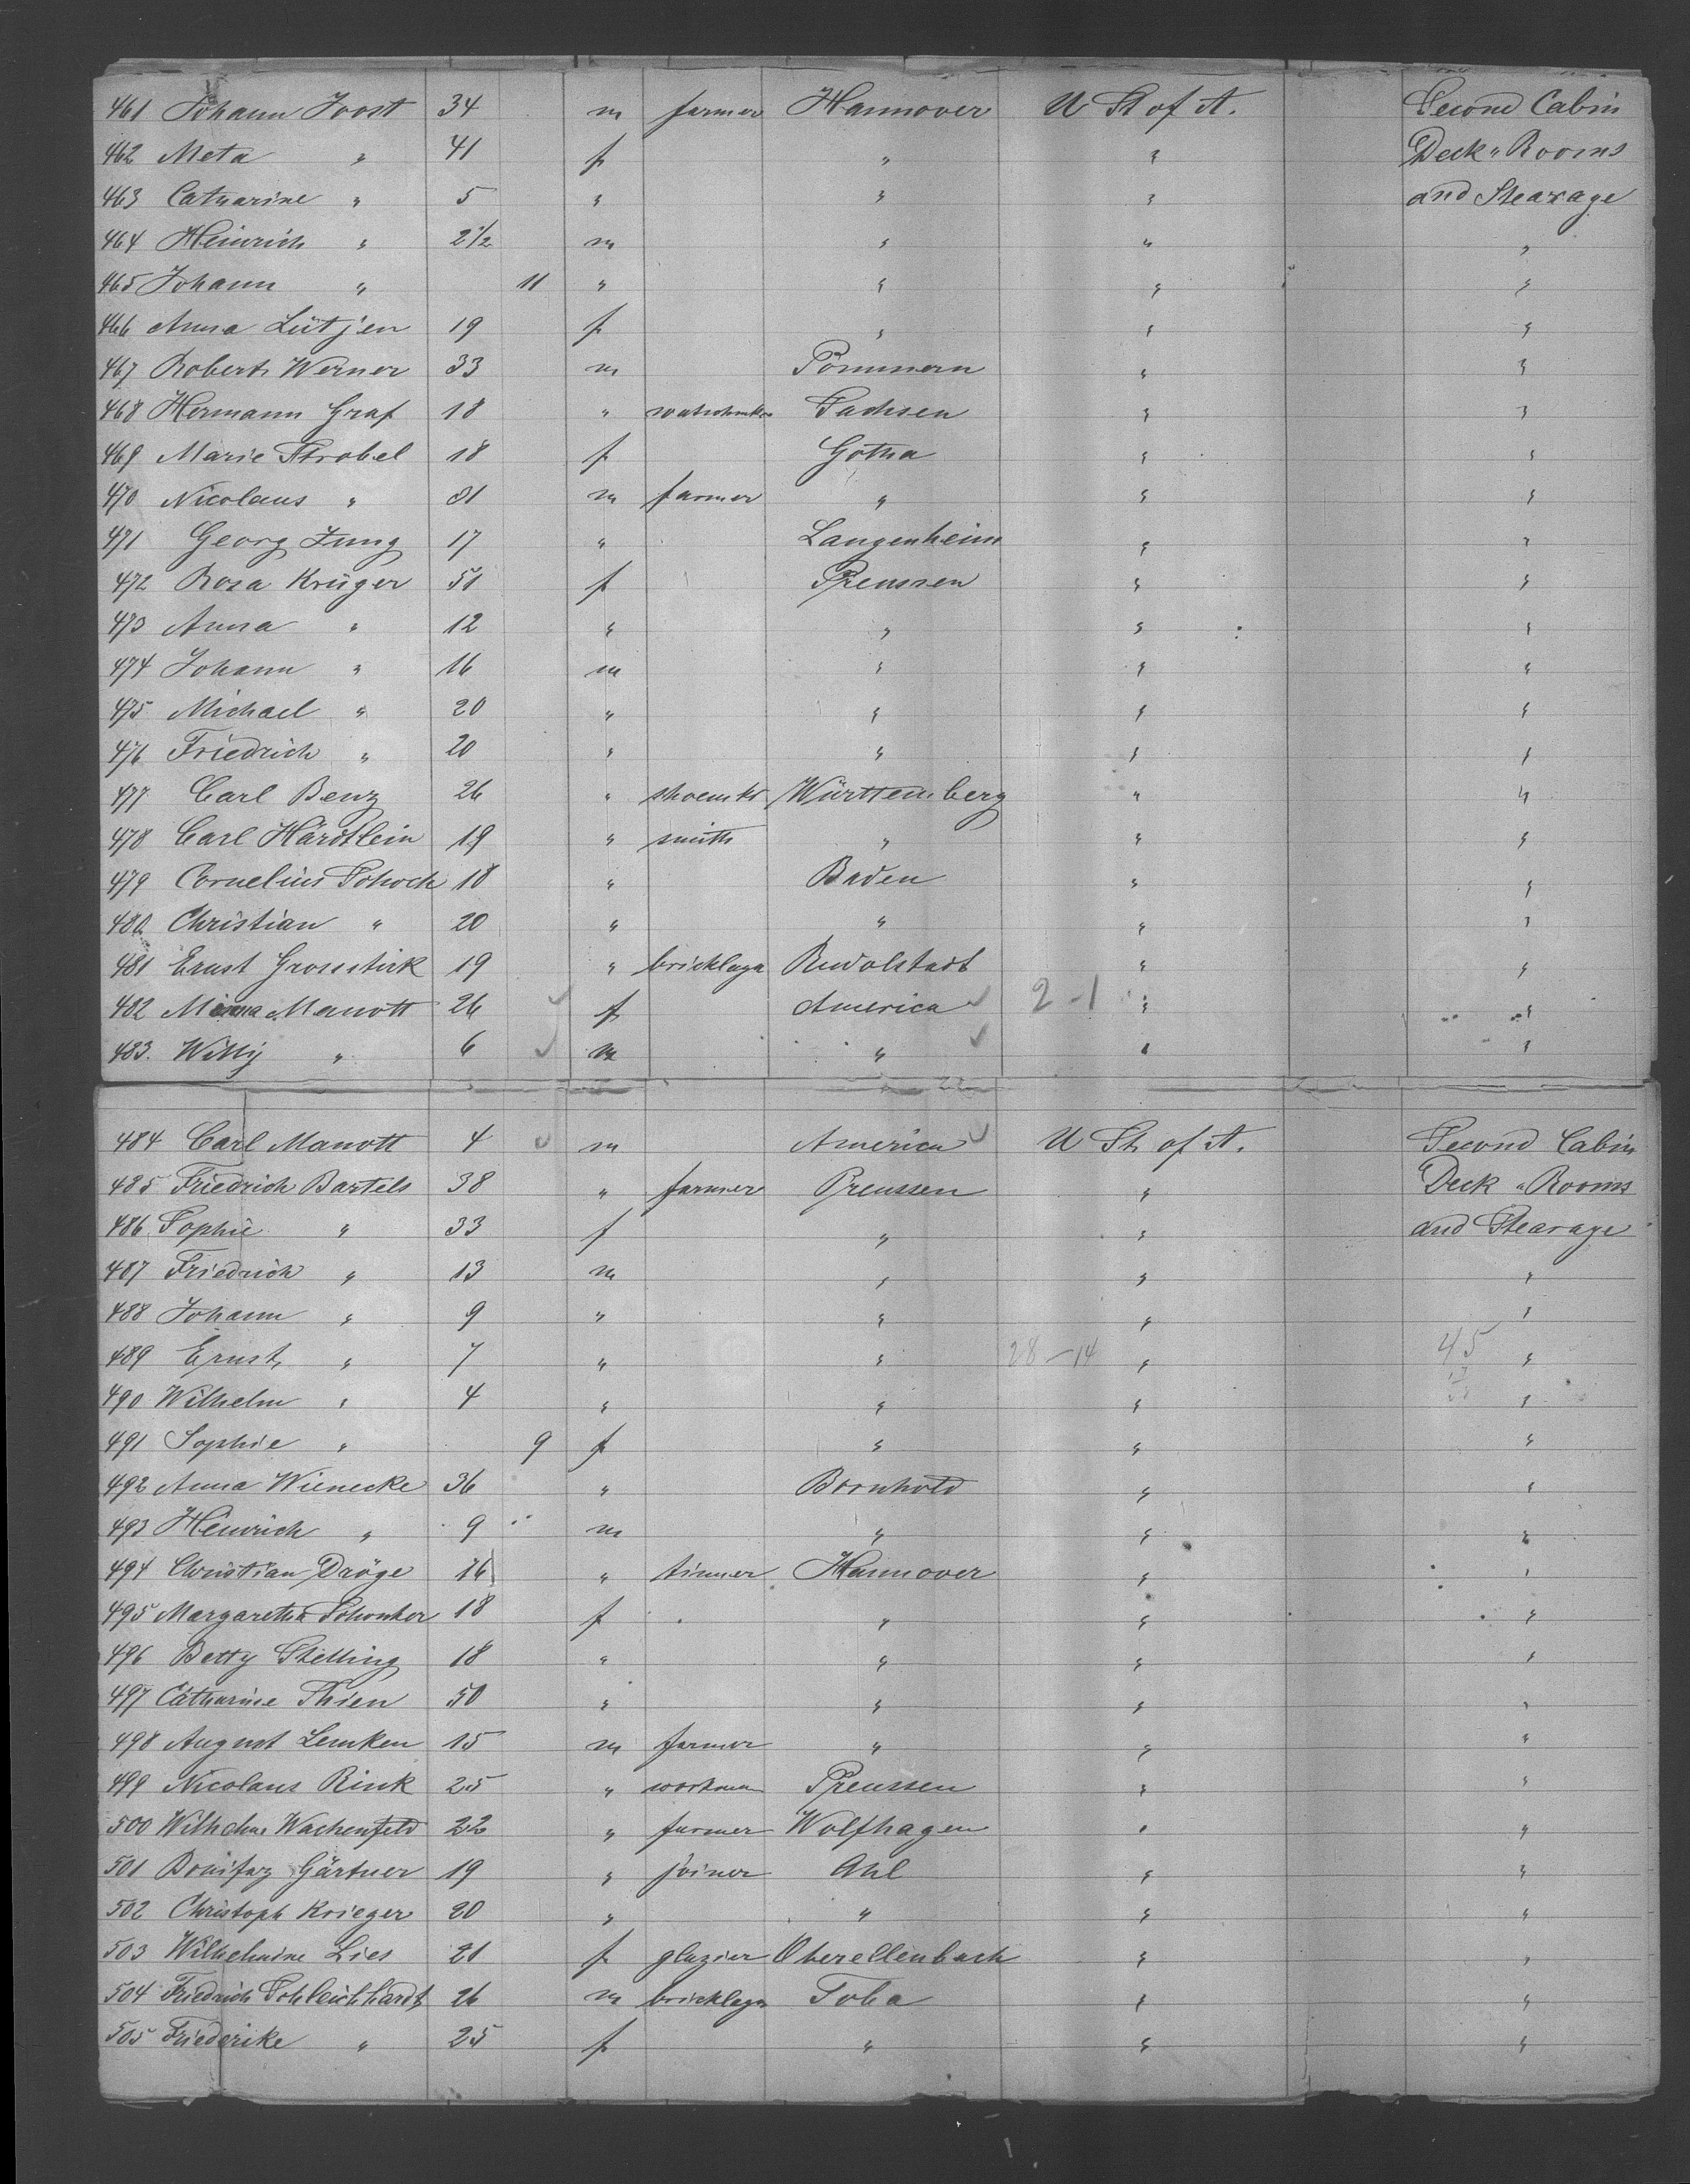 461 Johann Joost 34 m farmer Hannover U St of A. Second Cabin
462 Meta " 41 f " " Deck " Rooms
463 Catharine " 5 " " " and Stearage
464 Heinrich " 2½ m " " "
465 Johann " 11 " " " "
466 Anna Lütjen 19 f " " "
467 Robert Werner 33 m Pommern " "
468 Hermann Graf 18 " Sachsen " "
469 Marie Strobel 18 f Gotha " "
470 Nicolaus " 31 m farmer " " "
471 Georg Jung 17 " Langenheim " "
472 Rosa Krüger 51 f Preussen " "
473 Anna " 12 " " " "
474 Johann " 16 m " " "
475 Michael " 20 " " " "
476 Friedrich " 20 " " " "
477 Carl Benz 26 " shoemkr Württemberg " "
478 Carl Härdtlein 19 " smith " " "
479 Cornelius Schock 18 " Baden " "
480 Christian " 20 " " " "
481 Ernst 19 " Rudolstadt " "
482 Manott 26 f America 2-1 " "
483. Willy " 6 m " " "
484 Carl Manott 4 m America U St. of A. Second Cabin
485 Friedrich Bartels 38 " farmer Preussen " Deck " Rooms
486 Sophie " 33 f " " and Stearage
487 Friedrich " 13 m " " "
488 Johann " 9 " " " "
489 Ernst " 7 " " 28-14 " 45 "
490 Wilhelm " 4 " " " "
491 Sophie " 9 f " " "
492 Anna Wienecke 36 " Bornhold " "
493 Heinrich " 9 m " " "
494 Christian Dröge 16 " tinner Hannover " "
495 Margaretha Schonker 18 f " " "
496 Betty Stelling 18 " " " "
497 Catharine Thien 50 " " " "
498 August Lemken 15 m farmer " " "
499 Nicolaus Rink 25 " workman Preussen " "
500 Wilhelm Wachenfeld 22 " farmer Wolfhagen " "
501 Bonifaz Gärtner 19 " joiner Ahl " "
502 Christoph Krieger 20 " " " "
503 Wilhelmine Lies 21 f glazier Oberellenbach " "
504 Friedrich Schleichhardt 26 m Toba " "
505 Friederike " 25 f " " "